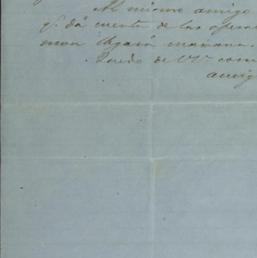 Al mismo amigo
q.e dá cuenta de las opera
man llegará mañana.
Quedo de VV. como
amig